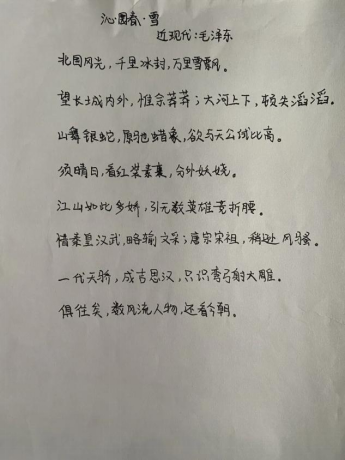 沁园春·雪
近现代:毛泽东
北国风光,千里冰封,万里雪飘。
望长城内外,惟余莽莽;大河上下,顿失滔滔。
山舞银蛇,原驰蜡象,欲与天公试比高。
须晴日,看红装素裹,分外妖娆。
江山如此多娇,引无数英雄竞折腰。
惜秦皇汉武,略输文采;唐宗宋祖,稍逊风骚。
一代天骄,成吉思汗,只识弯弓射大雕。
俱往矣,数风流人物,还看今朝。